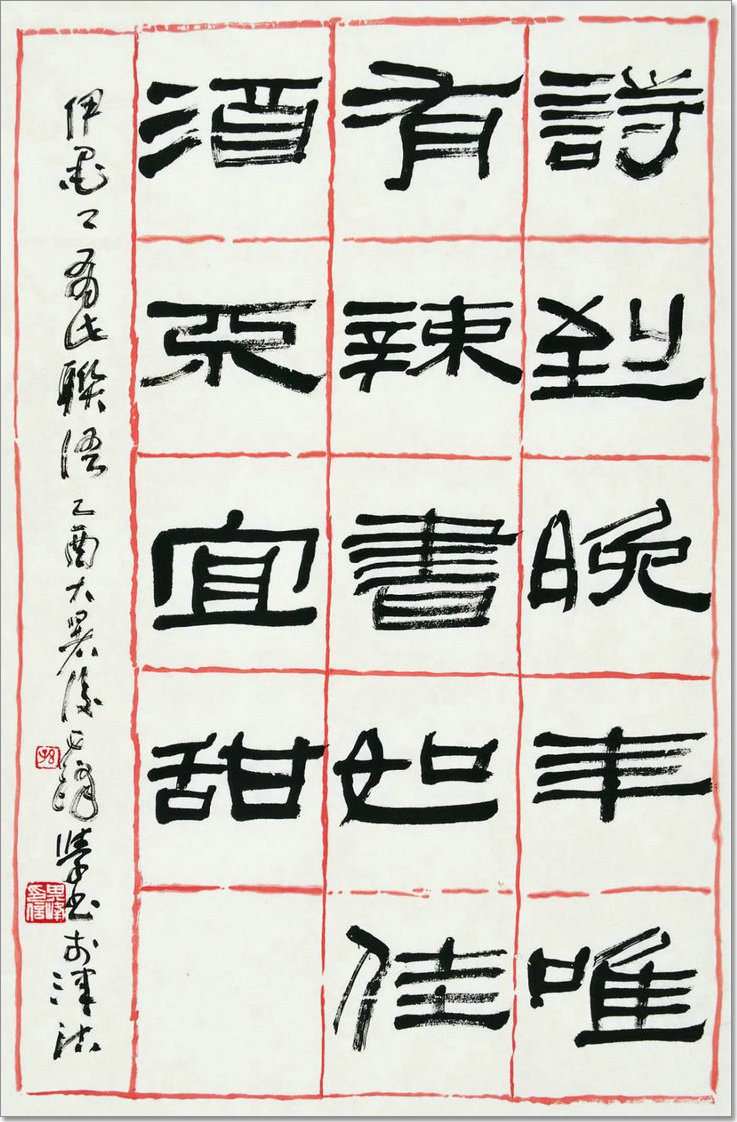 詩到晚年唯
有辣書如佳
酒不宜甜
伊墨卿有此聯語乙酉大暑後峰學書於津沽